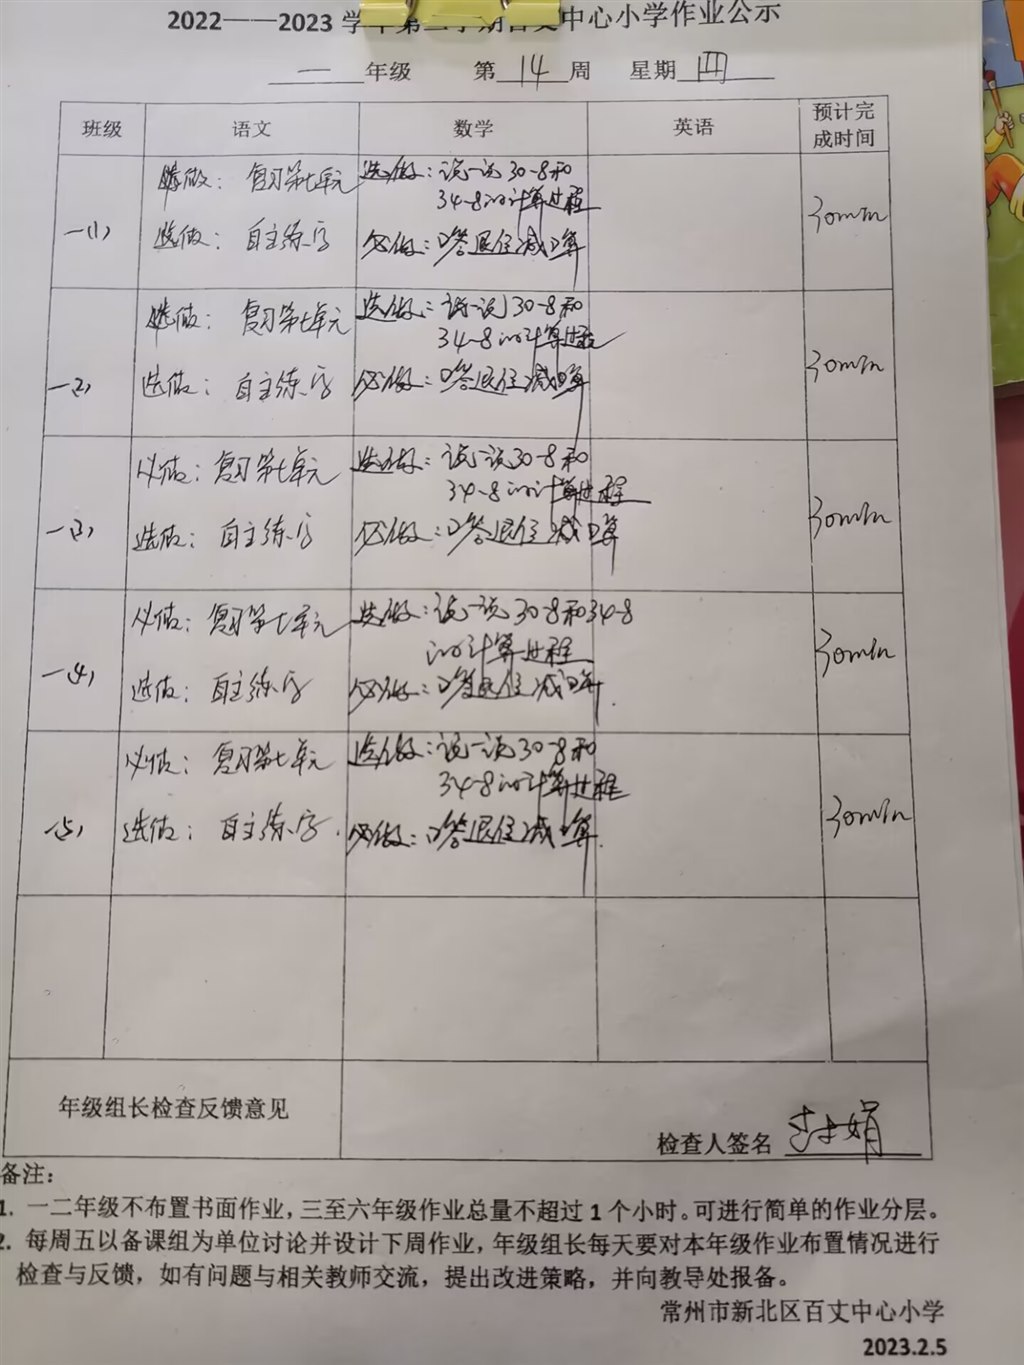 2022——2023 学年第二学期百丈中心小学作业公示
一 年级 第 14 周 星期 四
班级 语文 数学 英语 预计完成时间
一(1) 必做：复习第七单元 选做：说一说30-8和
34-8的计算过程
选做：自主练字 必做：口答退位减口算 30min
一(2) 必做：复习第七单元 选做：说一说30-8和
34-8的计算过程
选做：自主练字 必做：口答退位减口算 30min
一(3) 必做：复习第七单元 选做：说一说30-8和
34-8的计算过程
选做：自主练字 必做：口答退位减口算 30min
一(4) 必做：复习第七单元 选做：说一说30-8和34-8
的计算过程
选做：自主练字 必做：口答退位减口算. 30min
一(5) 必做：复习第七单元 选做：说一说30-8和
34-8的计算过程
选做：自主练字. 必做：口答退位减口算. 30min
年级组长检查反馈意见
检查人签名 娟
备注：
1. 一二年级不布置书面作业，三至六年级作业总量不超过 1 个小时。可进行简单的作业分层。
2. 每周五以备课组为单位讨论并设计下周作业，年级组长每天要对本年级作业布置情况进行
检查与反馈，如有问题与相关教师交流，提出改进策略，并向教导处报备。
常州市新北区百丈中心小学
2023.2.5